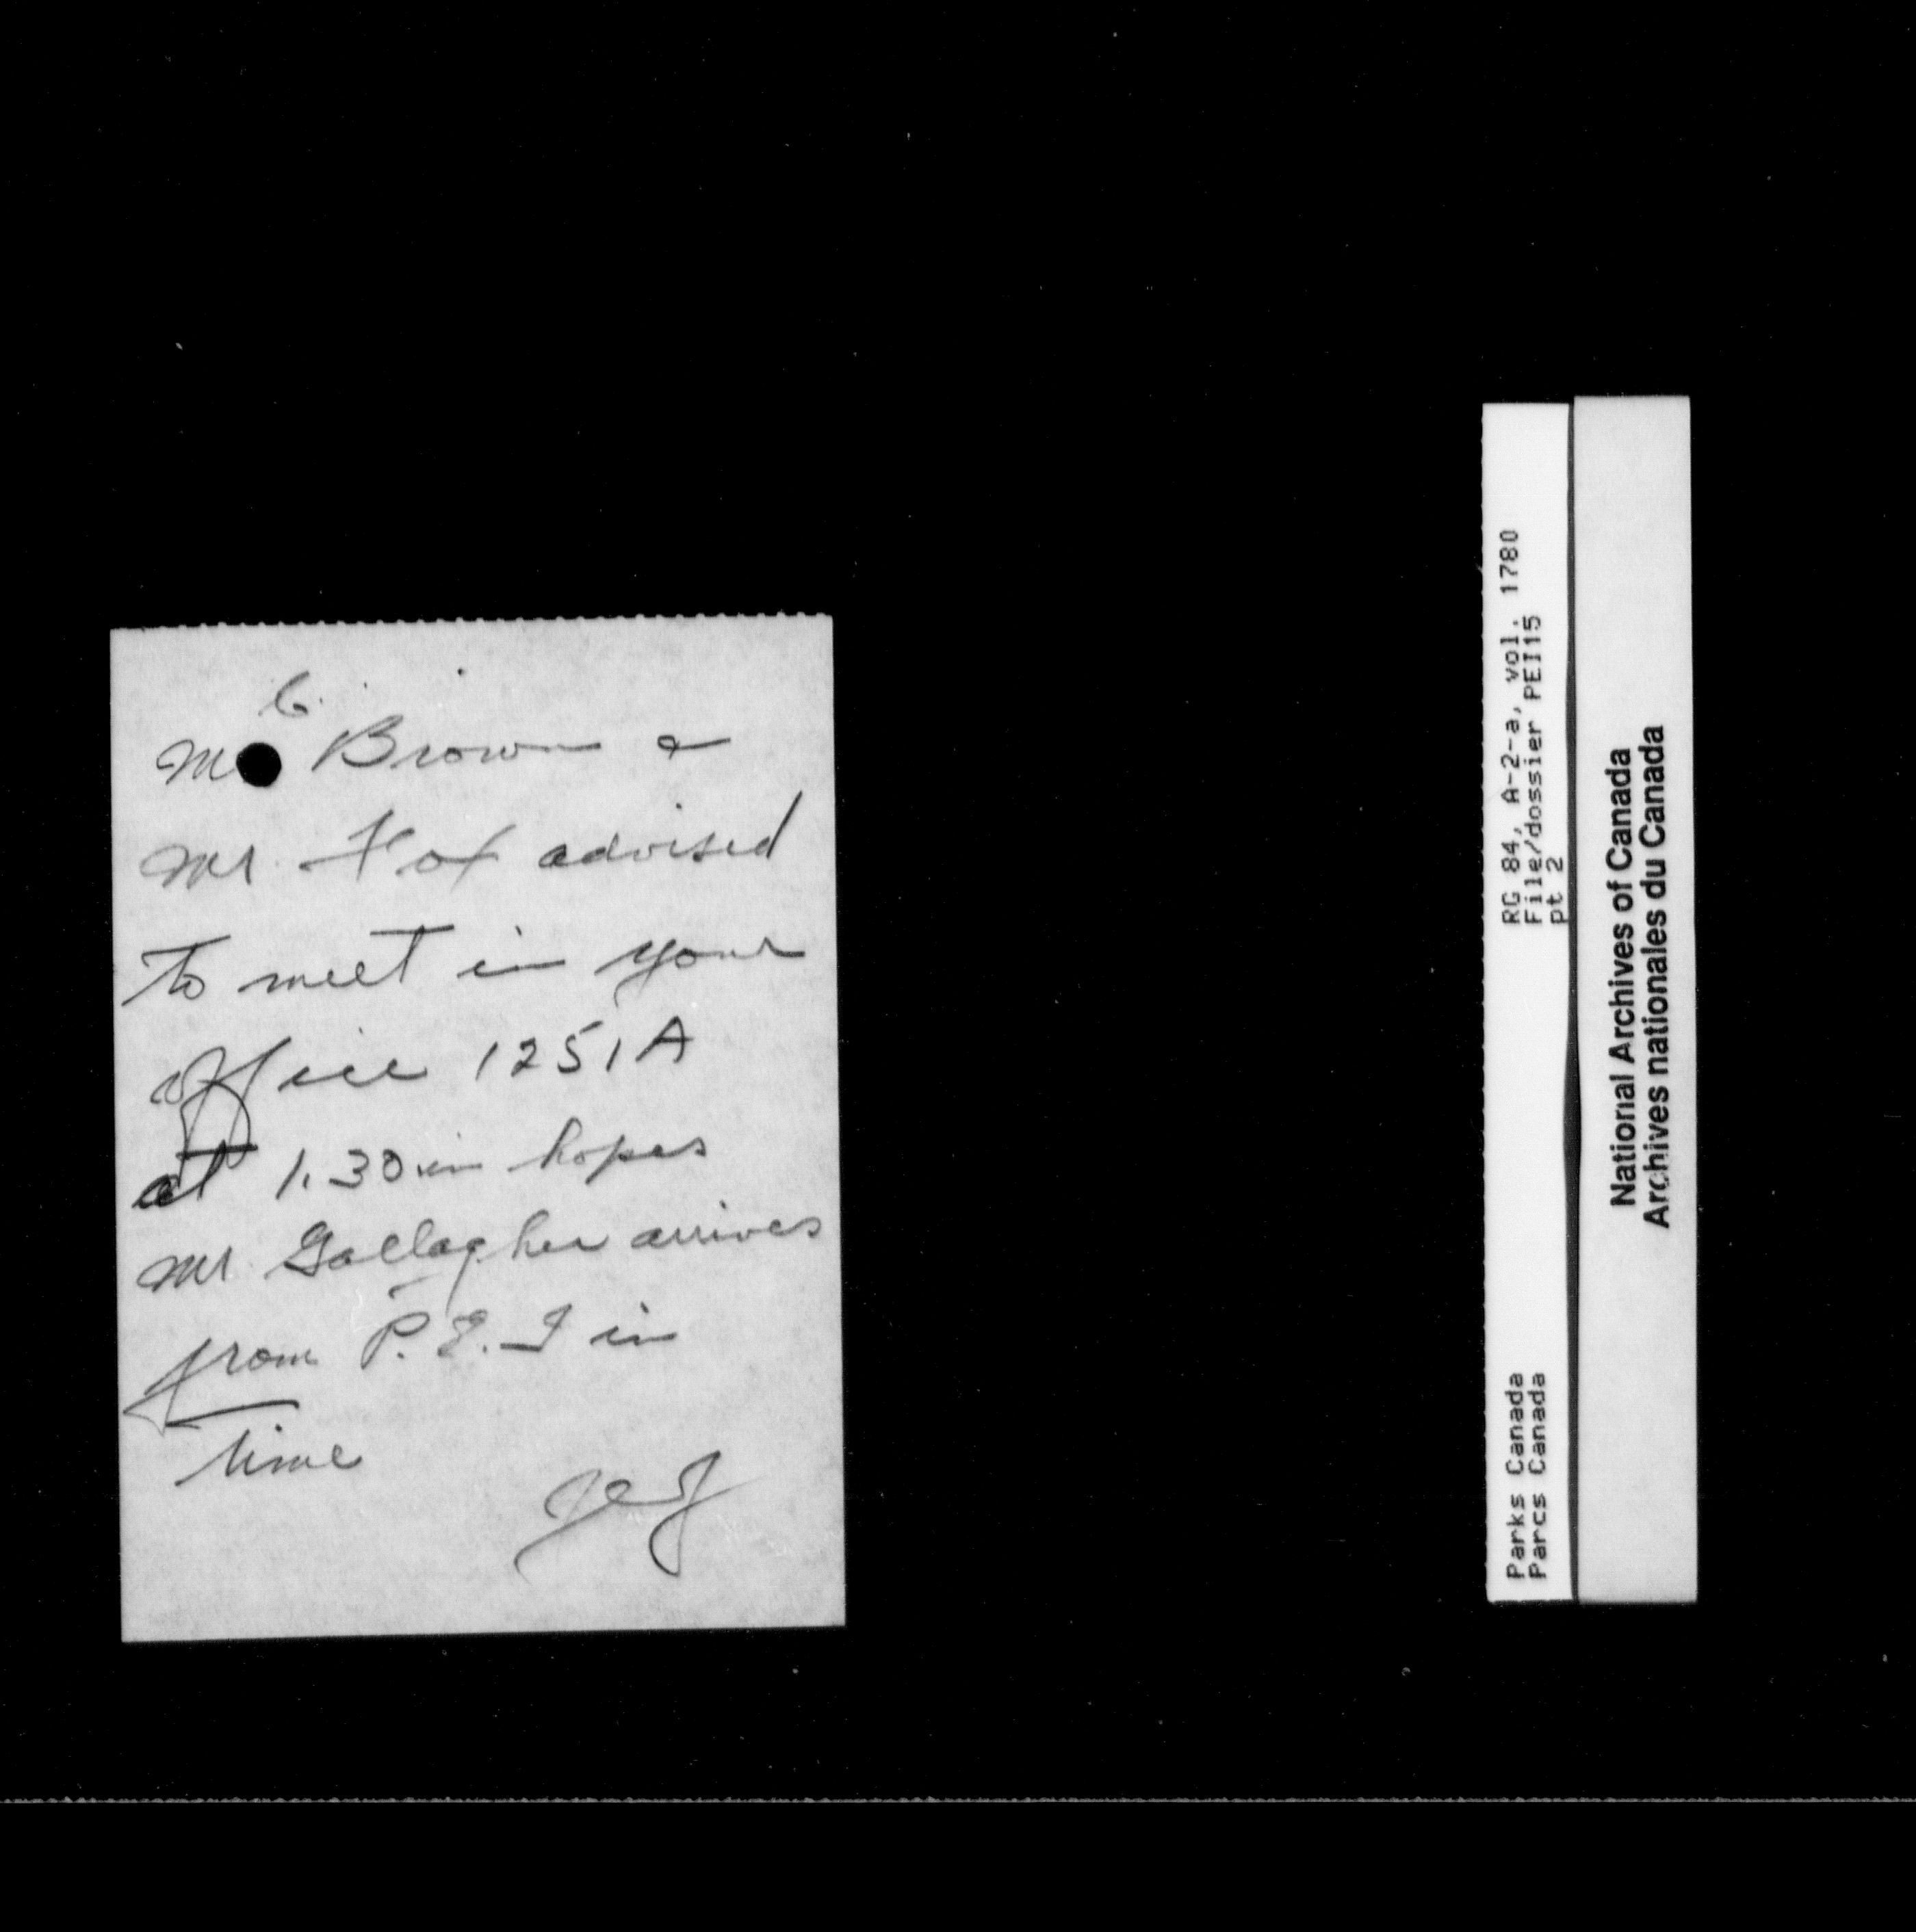 6.
Mr Brown &
Mr. Fox advised
to meet in your
office 1251A
at 1.30 in hopes
Mr. Gallagher arrives
from P.E.I in
time
RG 84, A-2-a, vol. 1780
File/dossier PEI15
pt 2
Parks Canada
Parcs Canada
National Archives of Canada
Archives nationales du Canada